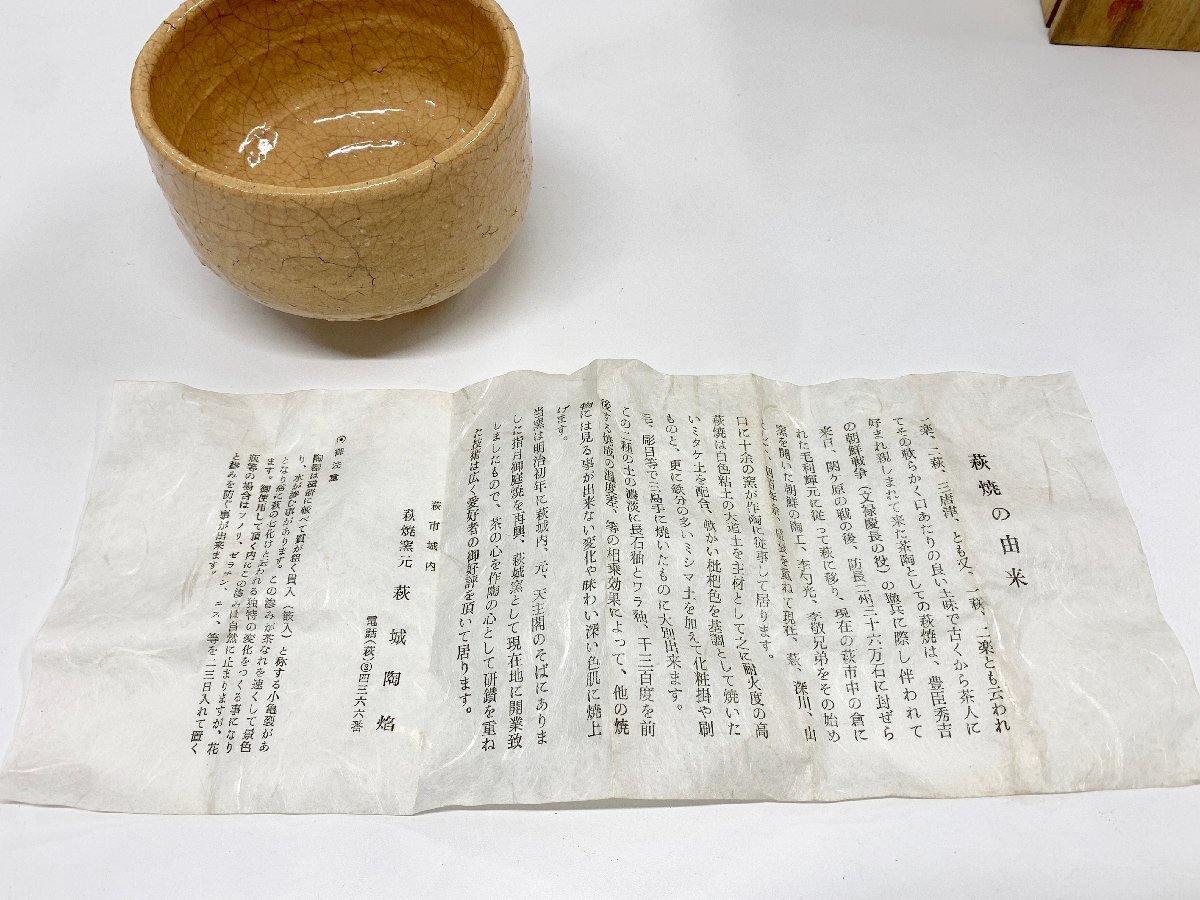 萩焼の由来
一楽、二萩、三唐津、とも又、一萩、二楽とも云われ
てその軟らかく口あたりの良い土味で古くから茶人に
好まれ親しまれて来た茶陶としての萩焼は、豊臣秀吉
の朝鮮戦争(文禄慶長の役)の撤兵に際し伴われて
来日、関ヶ原の戦の後、防長二州三十六万石に封ぜら
れた毛利輝元に従って萩に移り、現在の萩市中の倉に
窯を開いた朝鮮の陶工、李勺光、李敬兄弟をその始め
を重ねて現在、萩、深川、山
口に十余の窯が作陶に従事して居ります。
萩焼は白色粘土の大道土を主材として之に耐火度の高
いミタケ土を配合、軟かい枇杷色を基調として焼いた
ものと、更に鉄分の多いミシマ土を加えて化粧掛や刷
毛、彫目等で三島手に焼いたものに大別出来ます。
この二種の土の濃淡に長石釉とワラ釉、千三百度を前
後する焼成の温度差、等の相乗効果によって、他の焼
物には見る事が出来ない変化や味わい深い色肌に焼上
げます。
当窯は明治初年に萩城内、元、天主閣のそばにありま
した指月御庭焼を再興、萩城窯として現在地に開業致
しましたもので、茶の心を作陶の心として研鑽を重ね
た技術は広く愛好者の御好評を頂いて居ります。
萩市城内
萩焼窯元 萩城陶焔
電話(萩)②四三六六番
◉御注意
陶器は磁器に較べて質が粗く貫入(嵌入)と称する小亀裂があ
り、水が滲む事があります。この滲みが茶なれを速くして景色
となり俗に萩の七化けと云われる独特の変化をつくる事になり
ます。御使用して頂く内にこの滲みは自然に止まりますが、花
瓶等の場合はフノリ、ゼラチン、ニス、等を二三日入れて置く
と滲みを防ぐ事が出来ます。